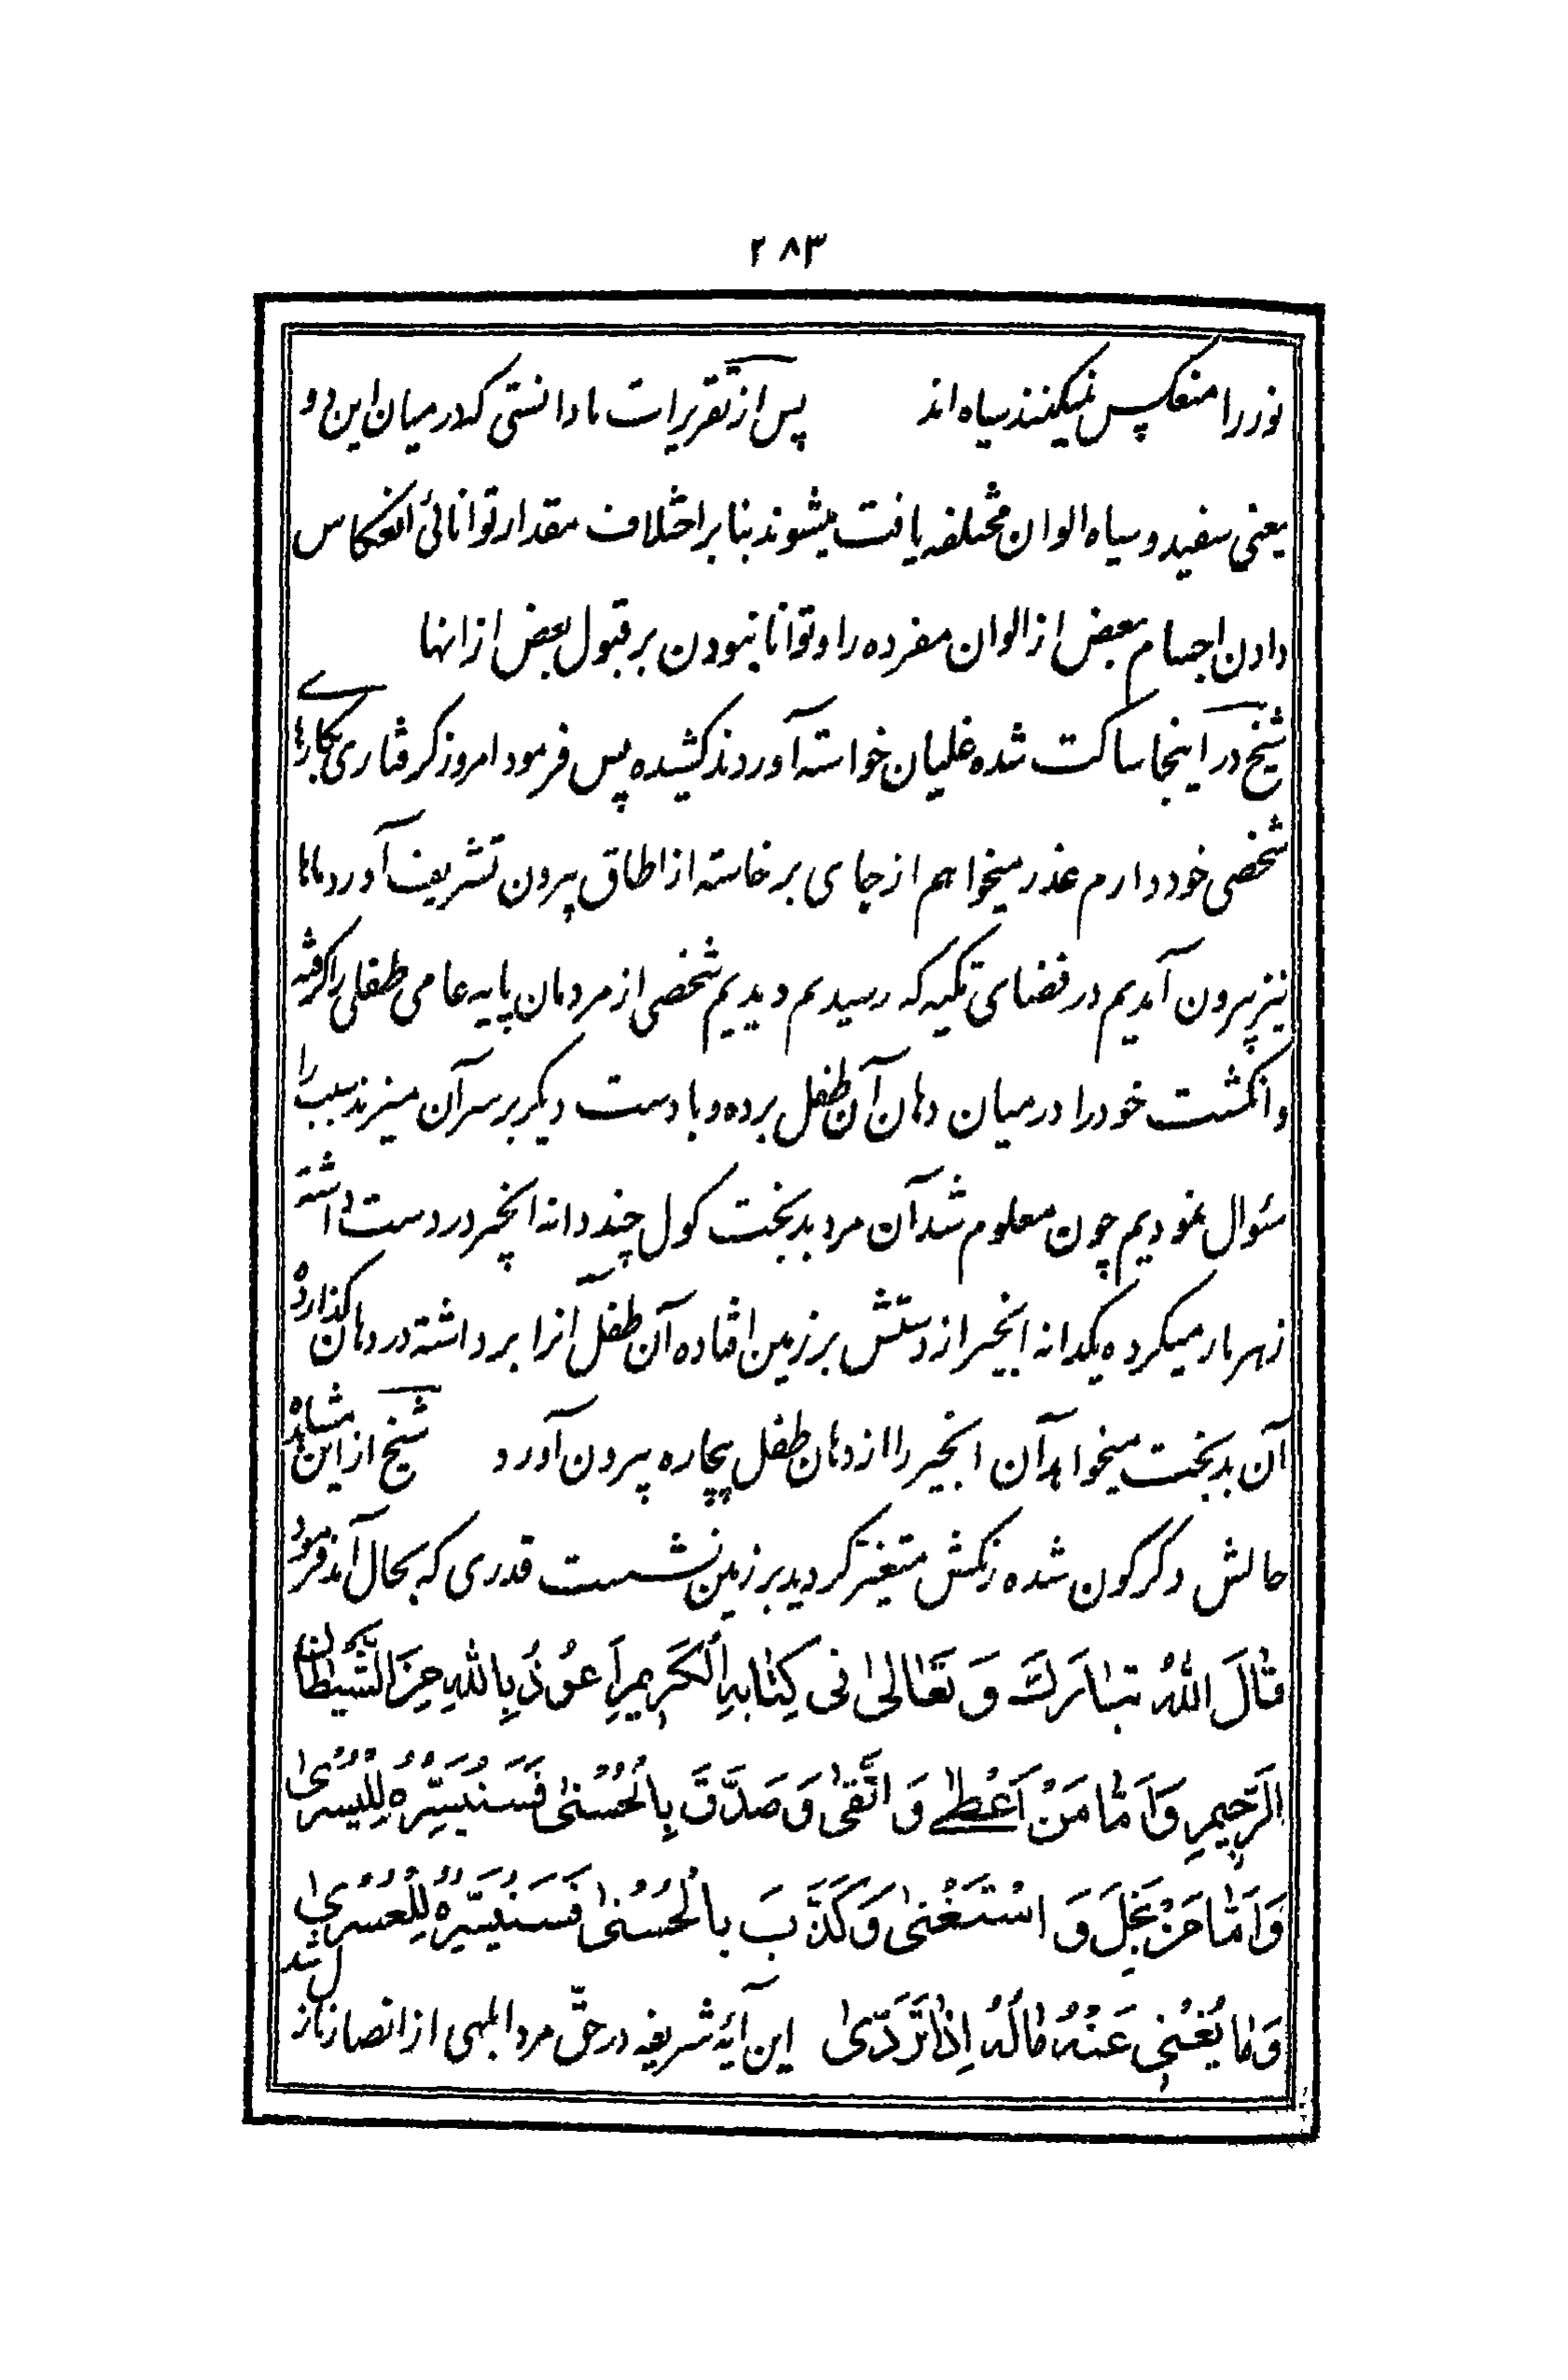 ۲۸۳
نور را منعکس نمیکنند سیاه اند پس از تقریرات ما دانستی که در میان این دو
یعنی سفید و سیاه الوان مختلفه یافت میشوند بنا بر اختلاف مقدار توانائی انعکاس
دادن اجسام بعض از الوان مفرده را و توانا نبودن بر قبول بعض از انها
شیخ در اینجا ساکت شده غلیان خواسته آوردند کشیده پس فرمود امروز گرفتاری بکارهای
شخصی خود دارم عذر میخواهم از جای برخاسته از اطاق بیرون تشریف آورد ماها
نیز بیرون آمدیم در فضای تکیه که رسیدیم دیدیم شخصی از مردمان پایه عامی طفلی را گرفته
و انگشت خود را در میان دهان آن طفل برده و با دست دیگر بر سر آن میزند سبب را
سئوال نمودیم چون معلوم شد آن مرد بدبخت کول چند دانه انجیر در دست داشته
زهرمار میکرده یکدانه انجیر از دستش بر زمین افتاده آن طفل آنرا برداشته در دهان گذارده
آن بدبخت میخواهد آن انجیر را از دهان طفل بیچاره بیرون آورد شیخ از این مشاهده
حالش دگرگون شده رنگش متغیّر گردید بر زمین نشست قدری که بحال آمد فرمود
قٰالَ اللهُ تَبٰارَكَ وَ تَعٰالىٰ فی كِتٰابِهِ الْكَرِیمِ اَعُوذُ بِاللهِ مِنَ الشَّیْطٰانِ
الرَّجِیمِ وَ اَمّٰا مَنْ اَعْطٰی وَ اتَّقٰی وَ صَدَّقَ بِالْحُسْنٰی فَسَنُیَسِّرُهُ لِلْیُسْرٰی
وَ اَمّٰا مَنْ بَخِلَ وَ اسْتَغْنٰی وَ كَذَّبَ بِالْحُسْنٰی فَسَنُیَسِّرُهُ لِلْعُسْرٰی
وَ مٰا یُغْنِی عَنْهُ مٰالُهُ اِذٰا تَرَدّٰی این آیهٔ شریفه در حقّ مرد ابلهی از انصار نازل شد